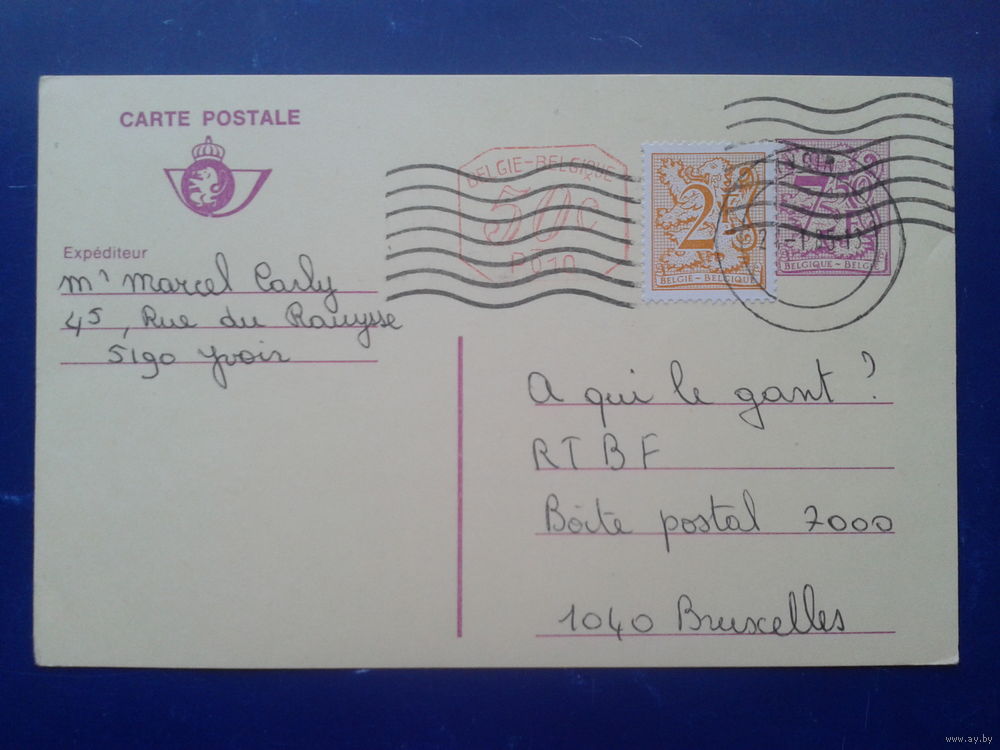 CARTE POSTALE
BELGIE-BELGIQUE
50c
P010
2F
BELGIE - BELGIQUE
BELGIQUE - BELGIË
Expéditeur
Mr Marcel Carly
45, Rue du Rauysse
5190 Yvoir
A qui le gant ?
RTBF
Bôite postal 7000
1040 Bruxelles
www.ay.by